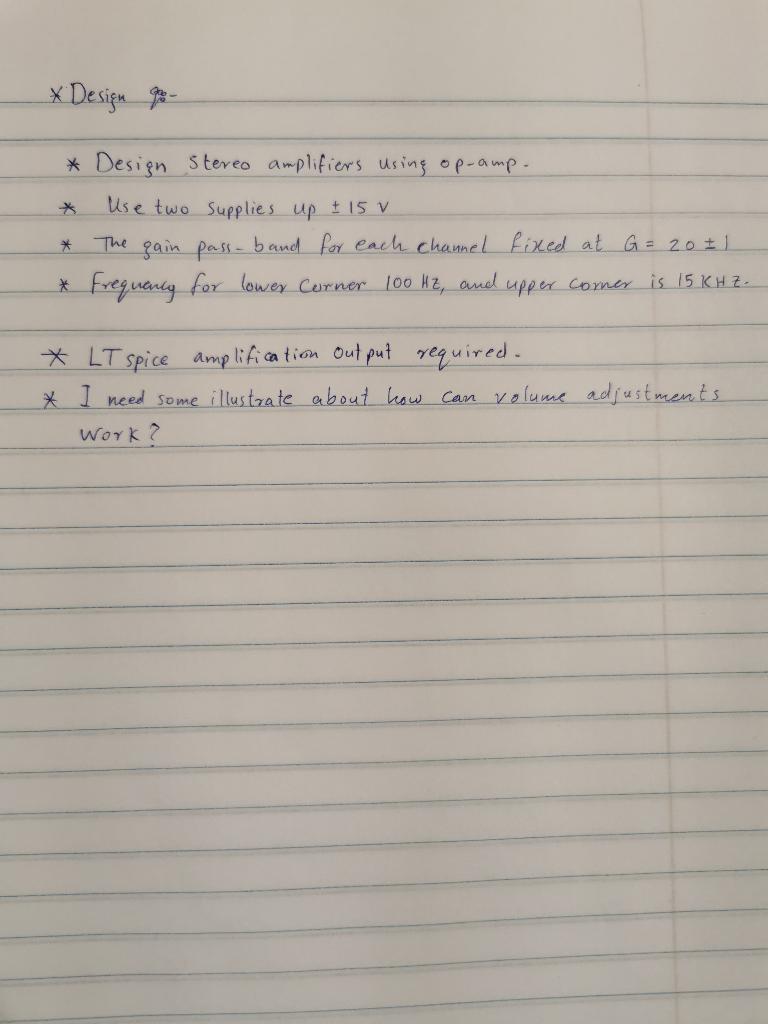 * Design :-
* Design Stereo amplifiers using op-amp.
* Use two supplies up ± 15 V
* The gain pass-band for each channel fixed at G = 20 ± 1
* Frequency for lower Corner 100 HZ, and upper corner is 15 KHZ.
* LTspice amplification output required.
* I need some illustrate about how can volume adjustments
work?